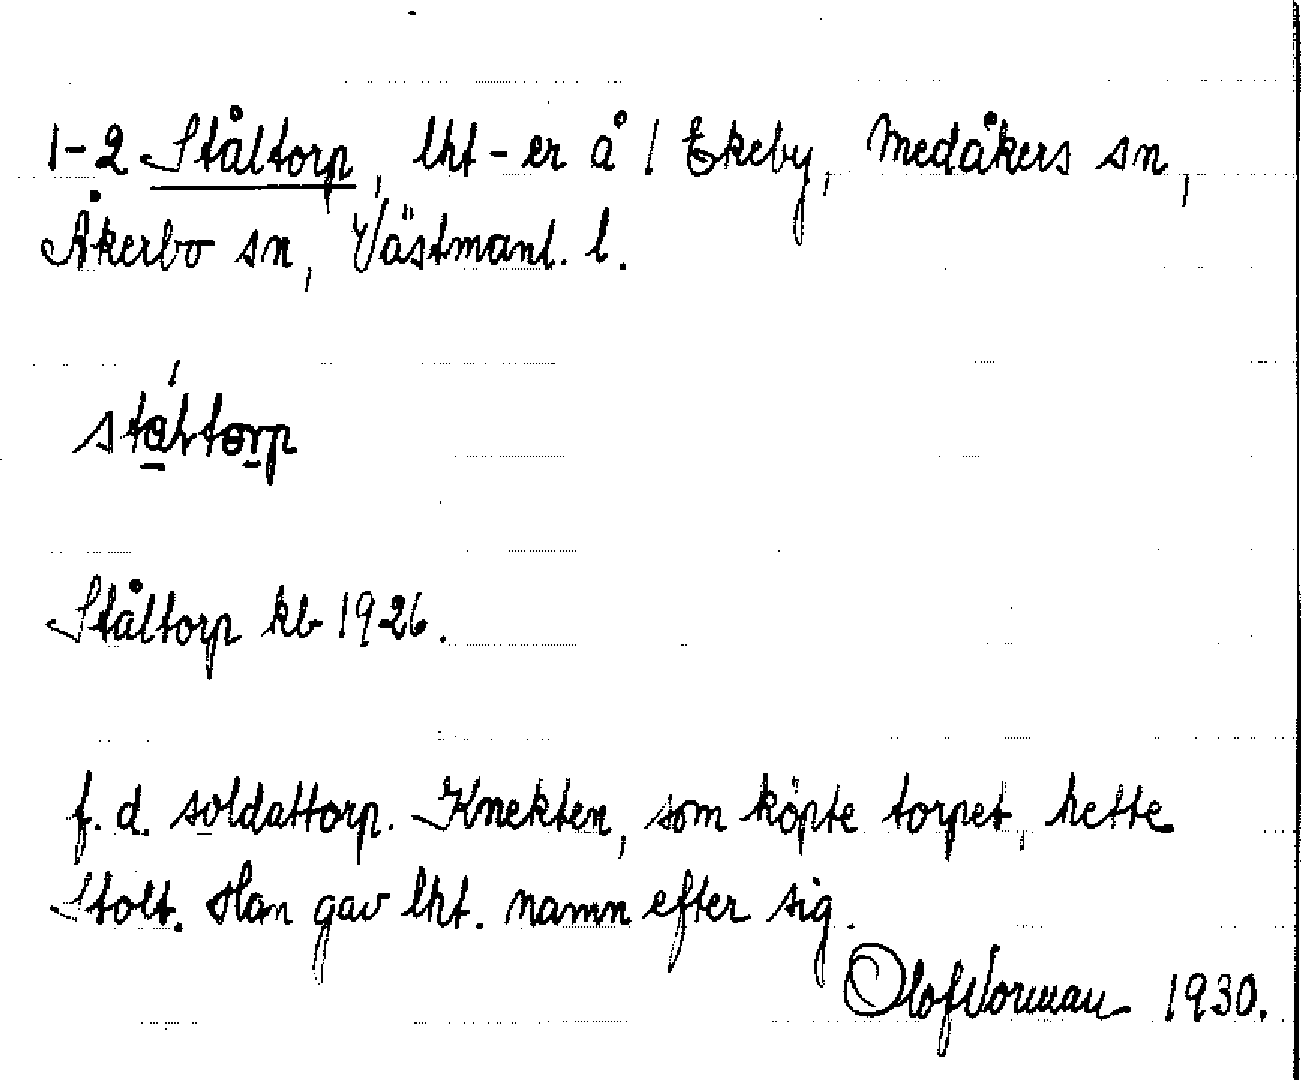 1-2 Ståltorp, lht-er å 1 Ekeby, Medåkers sn,
Åkerbo sn, Västmanl. l.
Ståltorp kb 1926.
f. d. soldattorp. Knekten, som köpte torpet, hette
Stolt. Han gav lht. namn efter sig.
Olof Norman 1930.